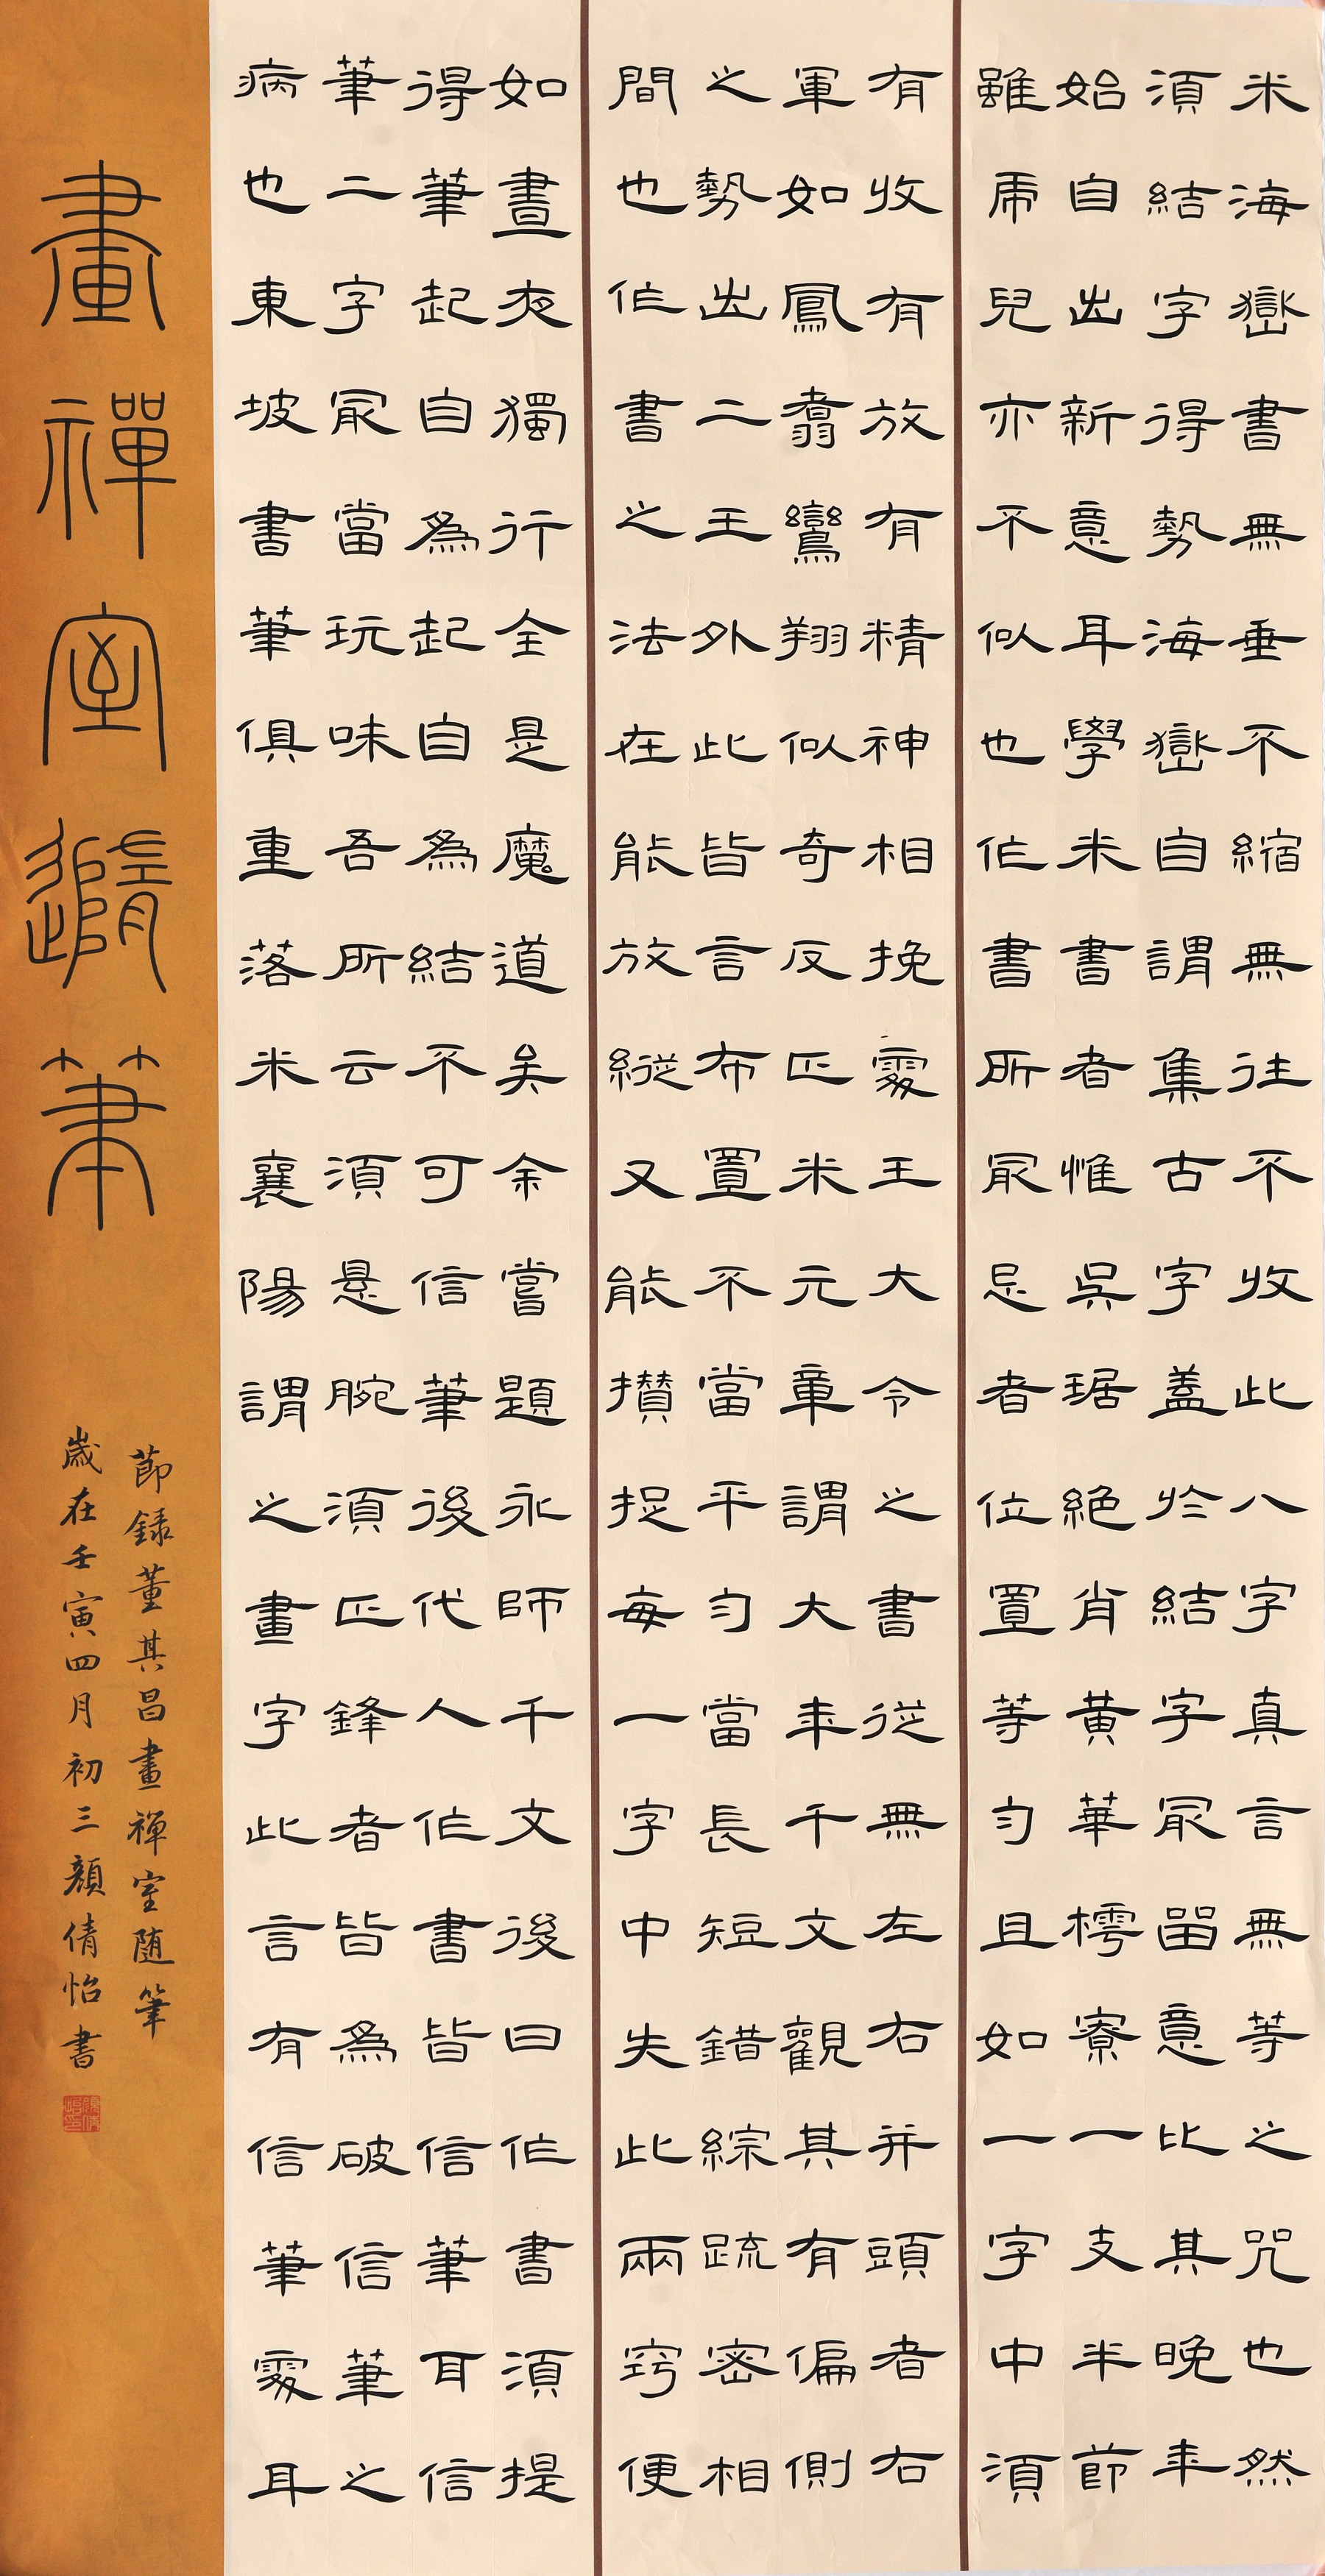 米海嶽書無垂不縮無往不收此八字真言無等之咒也然
須結字得勢海嶽自謂集古字蓋於結字最留意比其晚年
始自出新意耳學米書者惟吳琚絕肖黃華樗寮一支半節
雖虎兒亦不似也作書所最忌者位置等勻且如一字中須
有收有放有精神相挽處王大令之書從無左右并頭者右
軍如鳳翥鸞翔似奇反正米元章謂大年千文觀其有偏側
之勢出二王外此皆言布置不當平勻當長短錯綜疏密相
間也作書之法在能放縱又能攢捉每一字中失此兩竅便
如晝夜獨行全是魔道矣余嘗題永師千文後曰作書須提
得筆起自為起自為結不可信筆後代人作書皆信筆耳信
筆二字最當玩味吾所云須懸腕須正鋒者皆為破信筆之
病也東坡書筆俱重落米襄陽謂之畫字此言有信筆處耳
畫禪室隨筆
節錄董其昌畫禪室随筆
歲在壬寅四月初三顏倩怡書